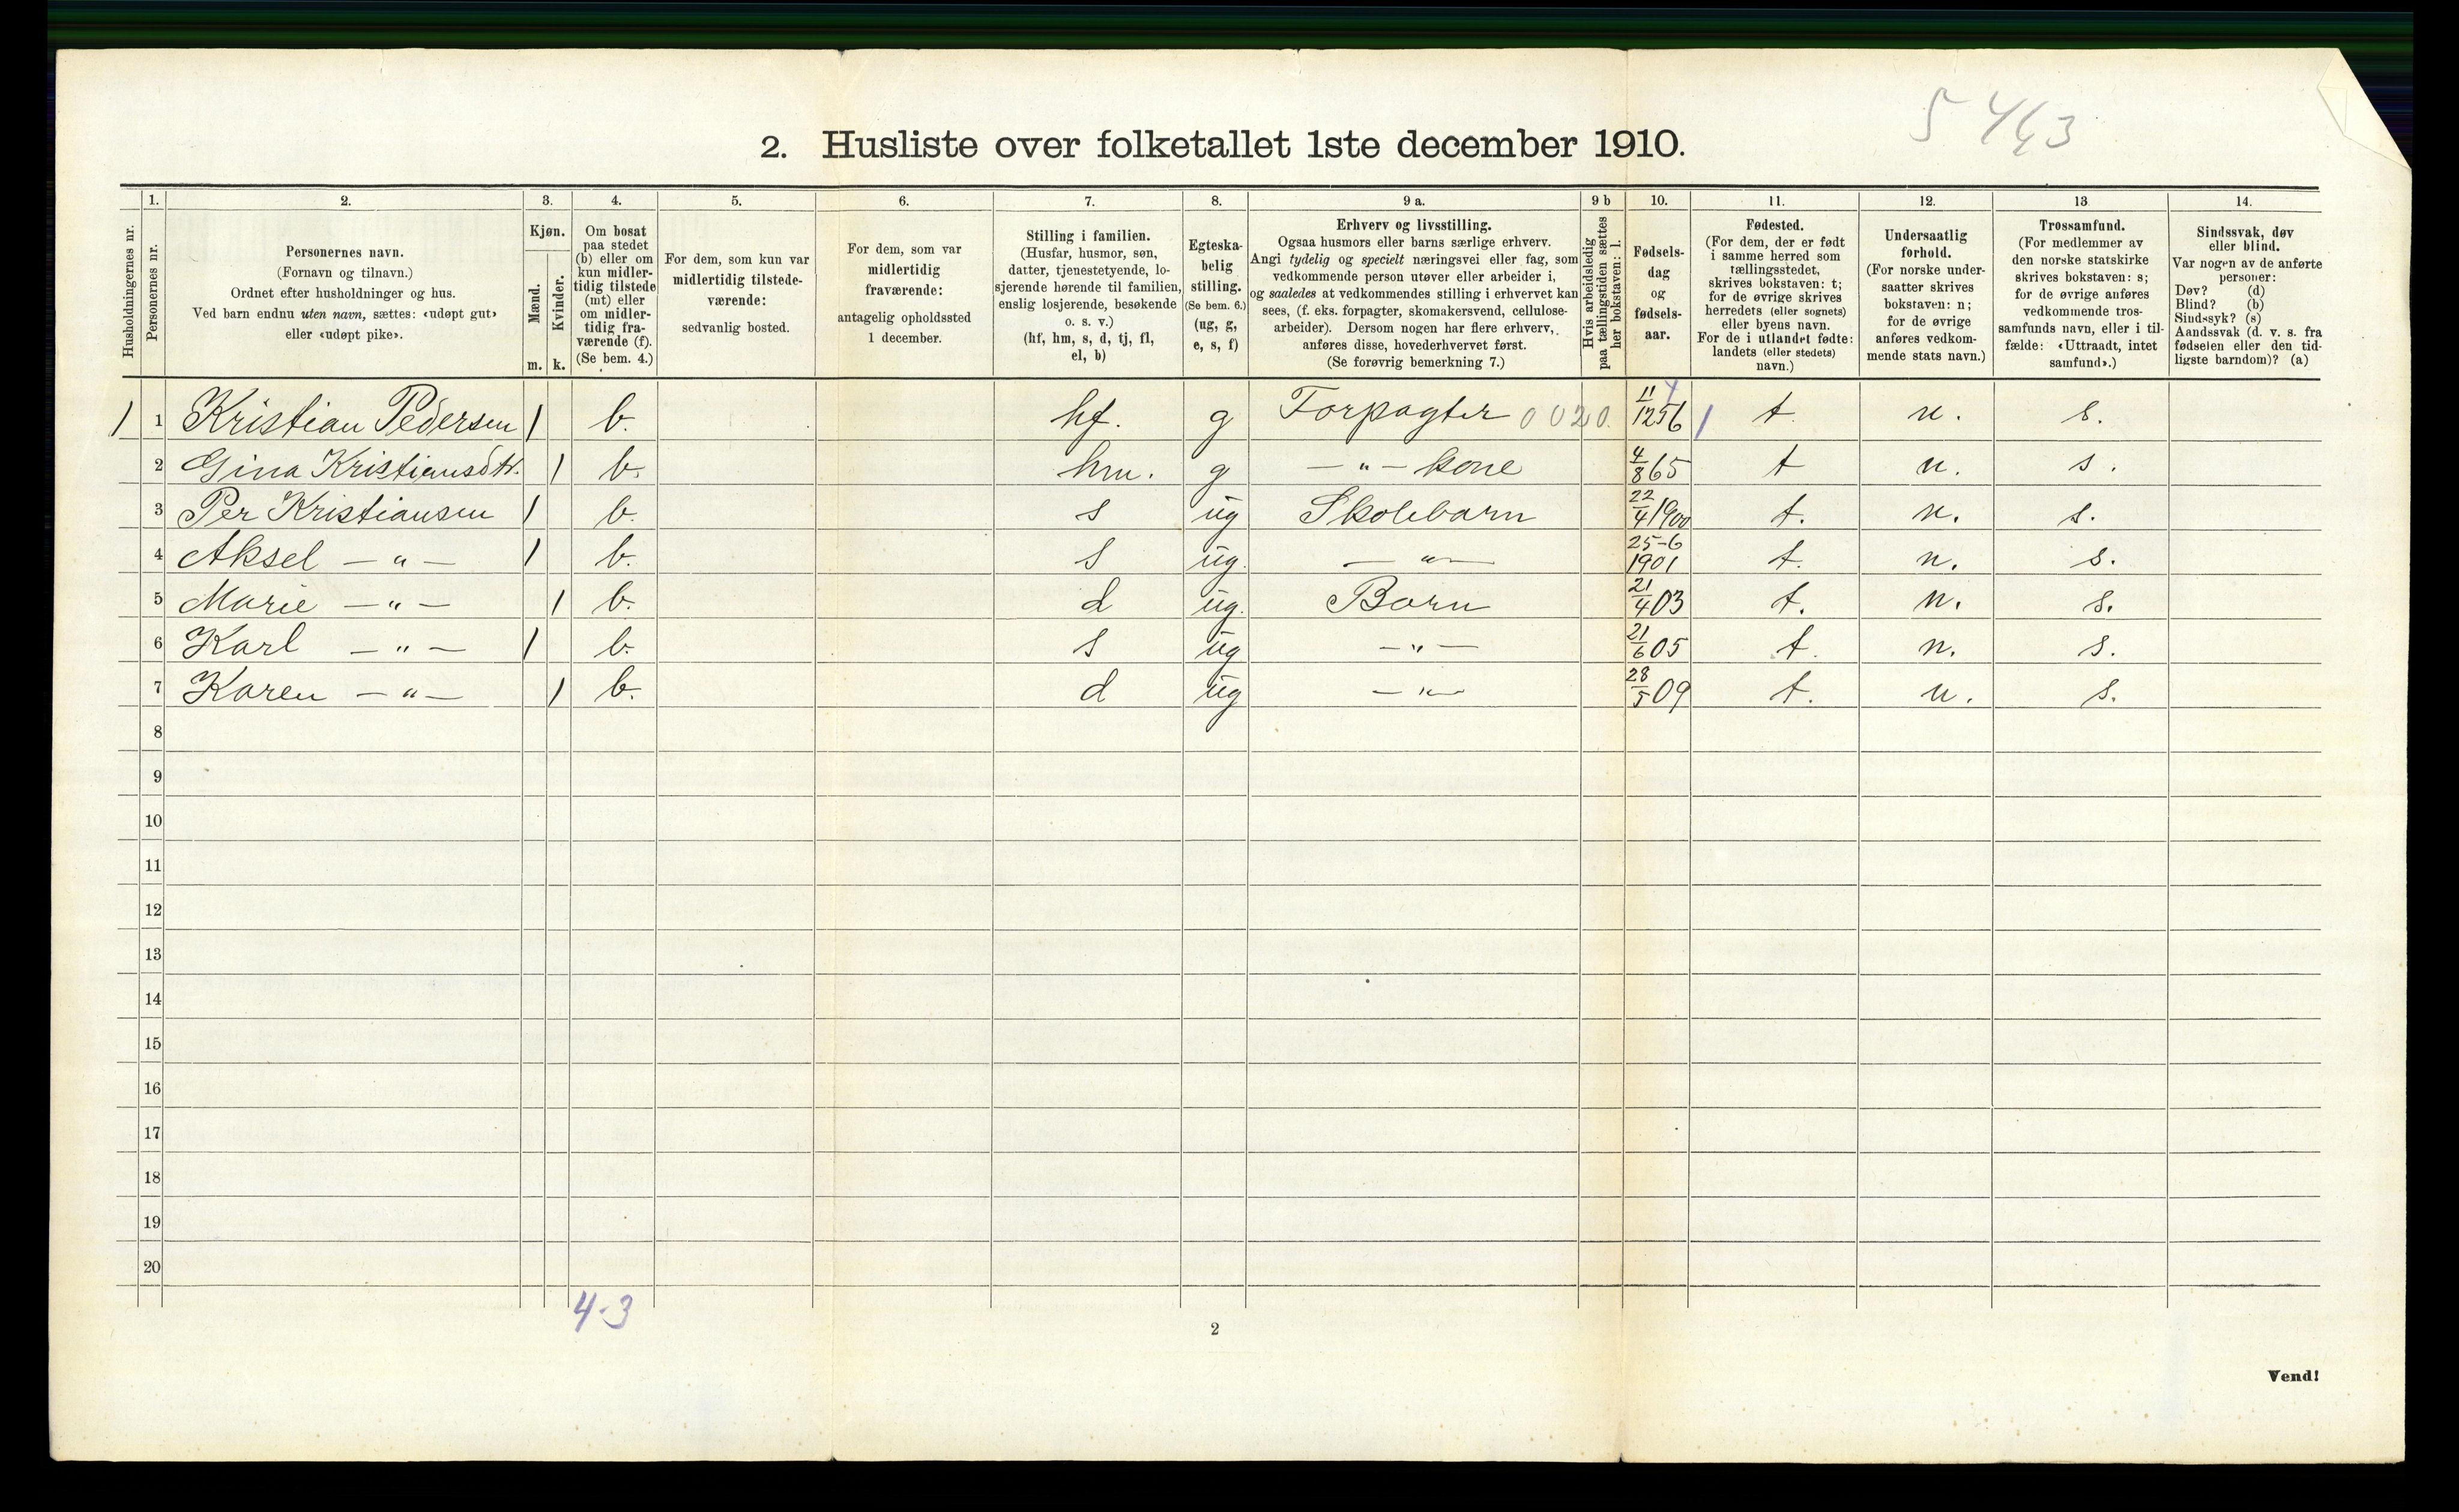 5 4
43
2. Husliste over folketallet 1ste december 1910.
1. 2. 3. 4. 5. 6. 7. 8. 9 a. 9 b 10. 11. 12. 13 14.
Husholdningernes nr.
Personernes nr.
Personernes navn.
(Fornavn og tilnavn.)
Ordnet efter husholdninger og hus.
Ved barn endnu uten navn, sættes: «udøpt gut»
eller «udøpt pike».
Kjøn.
Mænd.
Kvinder.
m. k.
Om bosat
paa stedet
(b) eller om
kun midler-
tidig tilstede
(mt) eller
om midler-
tidig fra-
værende (f).
(Se bem. 4.)
For dem, som kun var
midlertidig tilstede-
værende:
sedvanlig bosted.
For dem, som var
midlertidig
fraværende:
antagelig opholdssted
1 december.
Stilling i familien.
(Husfar, husmor, søn,
datter, tjenestetyende, lo-
sjerende hørende til familien,
enslig losjerende, besøkende
o. s. v.)
(hf, hm, s, d, tj, fl,
el, b)
Egteska-
belig
stilling.
(Se bem. 6.)
(ug, g,
e, s, f)
Erhverv og livsstilling.
Ogsaa husmors eller barns særlige erhverv.
Angi tydelig og specielt næringsvei eller fag, som
vedkommende person utøver eller arbeider i,
og saaledes at vedkommendes stilling i erhvervet kan
sees, (f. eks. forpagter, skomakersvend, cellulose-
arbeider). Dersom nogen har flere erhverv,
anføres disse, hovederhvervet først.
(Se forøvrig bemerkning 7.)
Hvis arbeidsledig
paa tællingstiden sættes
her bokstaven: l.
Fødsels-
dag
og
fødsels-
aar.
Fødested.
(For dem, der er født
i samme herred som
tællingsstedet,
skrives bokstaven: t;
for de øvrige skrives
herredets (eller sognets)
eller byens navn.
For de i utlandet fødte:
landets (eller stedets)
navn.)
Undersaatlig
forhold.
(For norske under-
saatter skrives
bokstaven: n;
for de øvrige
anføres vedkom-
mende stats navn.)
Trossamfund.
(For medlemmer av
den norske statskirke
skrives bokstaven: s;
for de øvrige anføres
vedkommende tros-
samfunds navn, eller i til-
fælde: «Uttraadt, intet
samfund».)
Sindssvak, døv
eller blind.
Var nogen av de anførte
personer:
Døv? (d)
Blind? (b)
Sindssyk? (s)
Aandssvak (d. v. s. fra
fødselen eller den tid-
ligste barndom)? (a)
1 1 Kristian Pedersen 1 b. hf. g Forpagter 0020. 11/12 56 t n. s.
2 Gina Kristiansdtr. 1 b. hm. g — " — kone 4/8 65 t n. s.
3 Per Kristiansen 1 b. s ug Skolebarn 22/4 1900 t. n. s.
4 Aksel — " — 1 b. s ug. — " — 25-6 1901 t. n. s.
5 Marie — " — 1 b. d ug. Barn 21/4 03 t. n. s.
6 Karl — " — 1 b. s ug — " — 21/6 05 t. n. s.
7 Karen — " — 1 b. d ug — " — 28/5 09 t. n. s.
8
9
10
11
12
13
14
15
16
17
18
19
20
4-3
2
Vend!